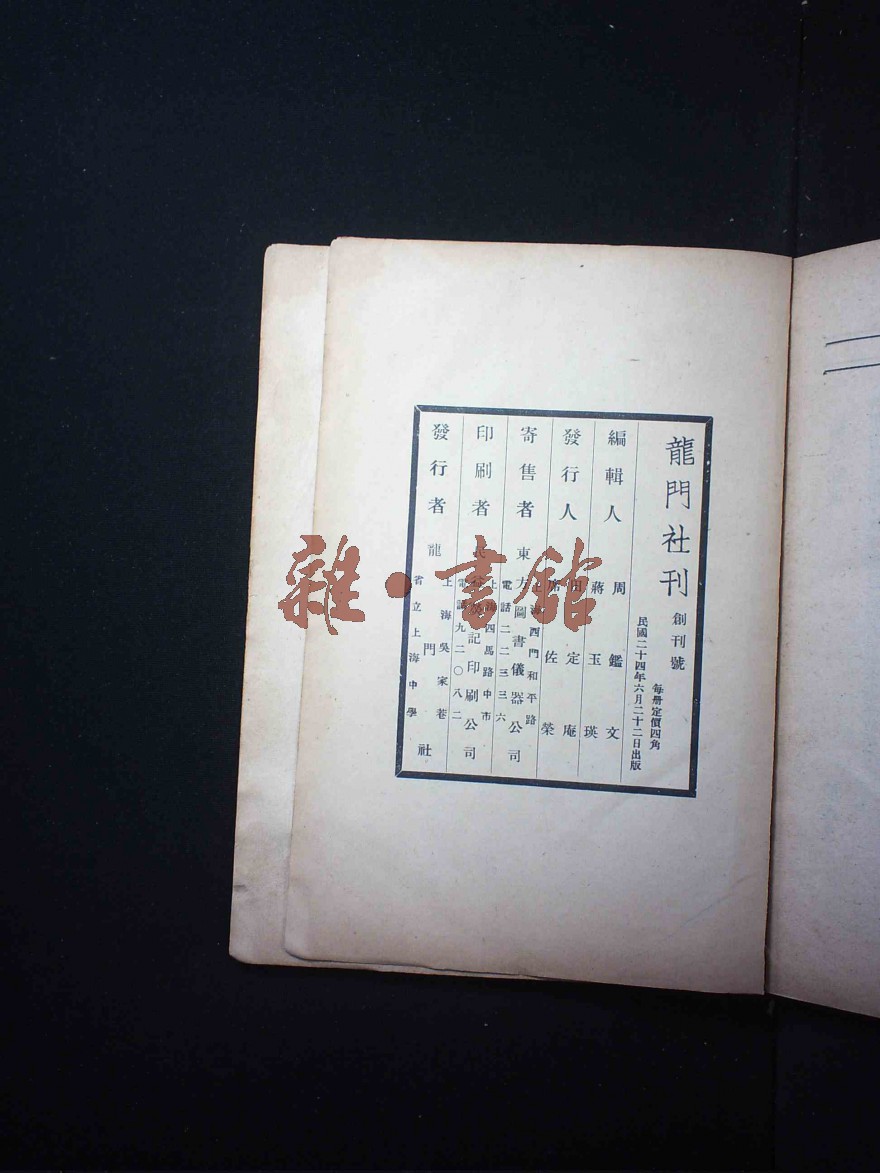 龍門社刊
創刊號
每册定價四角
民國二十四年六月二十二日出版
編輯人
周鑑文
蔣玉瑛
發行人
田定庵
席佐榮
寄售者
東方圖書儀器公司
上海西門和平路
電話二二三三六
印刷者
記印刷公司
上海四馬路中市
電話九二〇八二
發行者
龍門社
上海吳家巷
省立上海中學
雜·書館